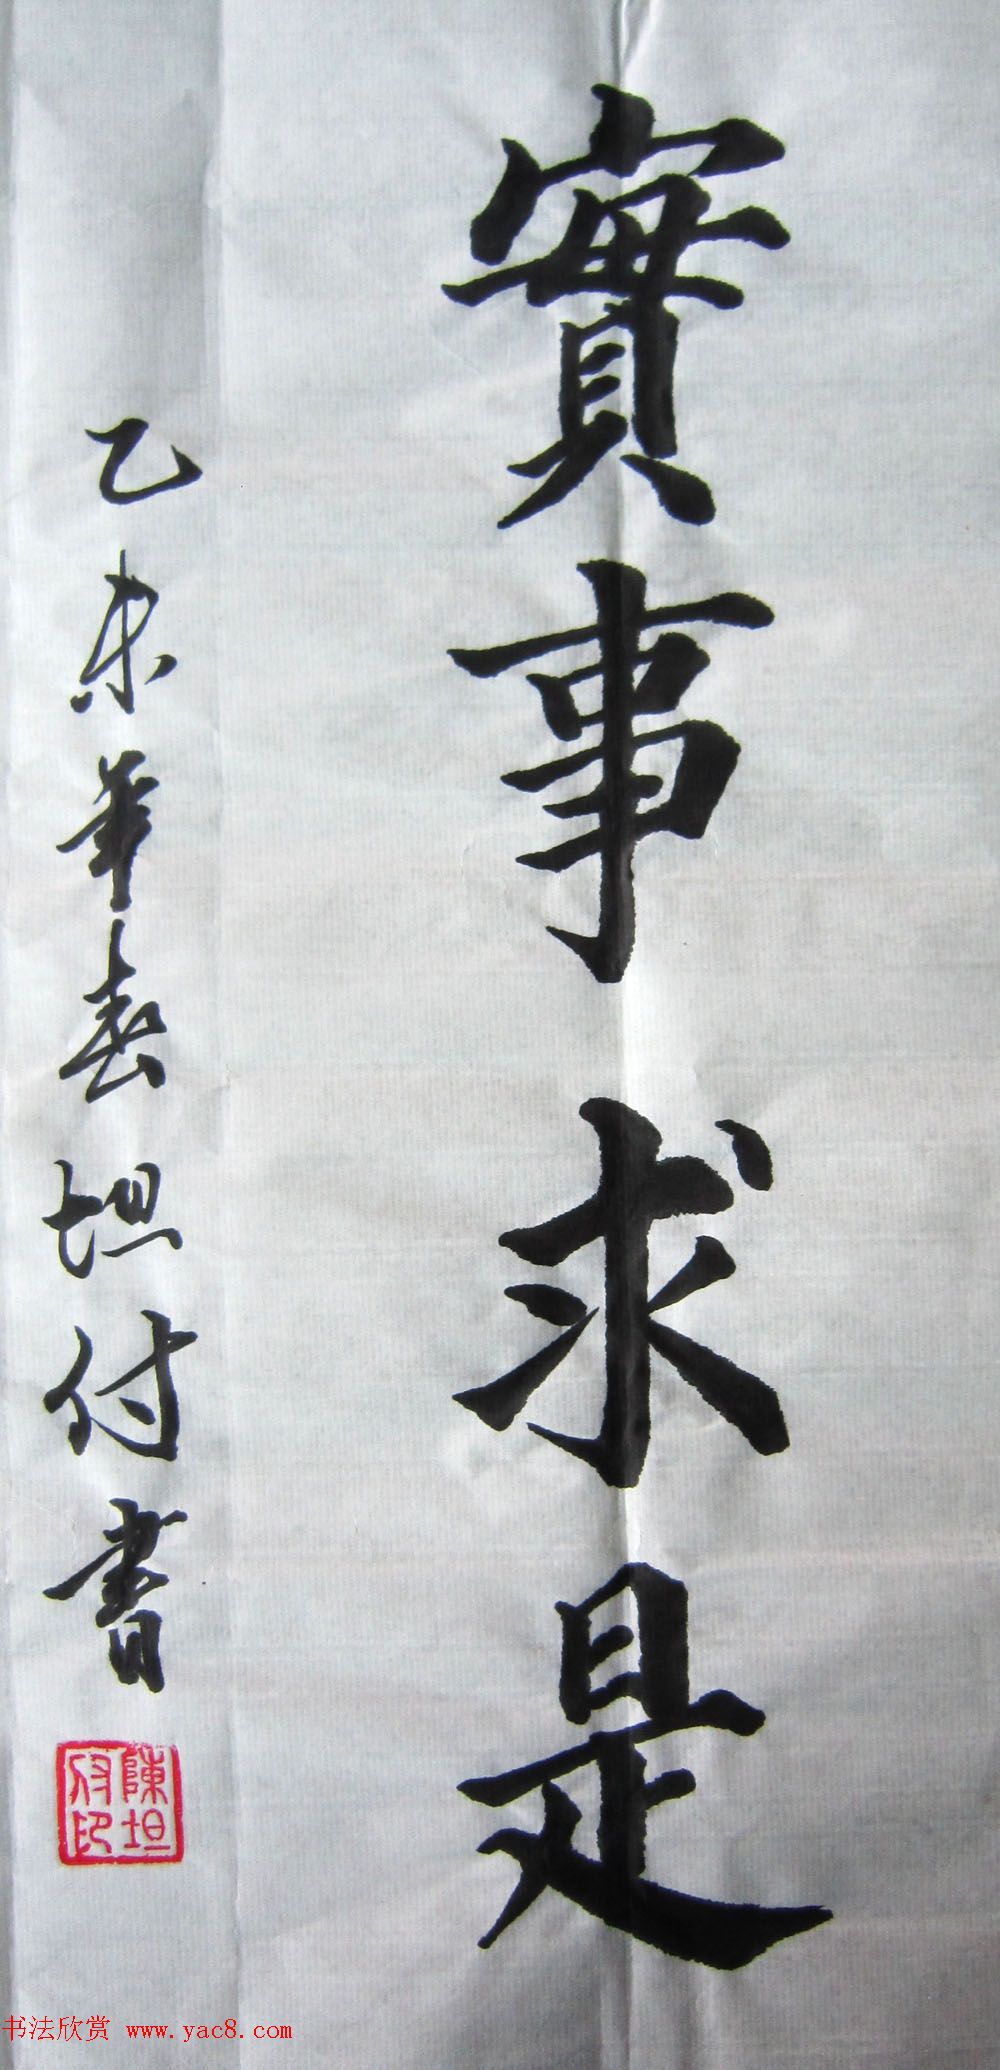 實事求是
乙未年春坦付書
陳坦付印
书法欣赏 www.yac8.com